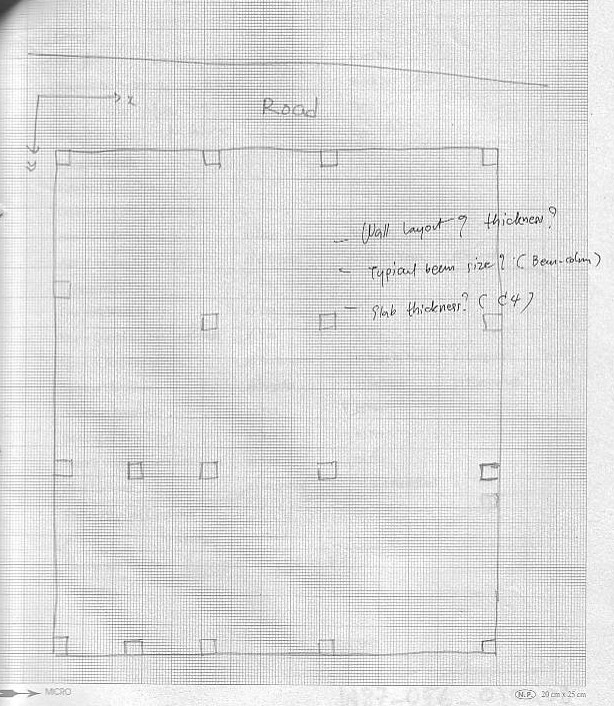 x
Road
y
- Wall layout & thickness?
- Typical beam size? (Beam-colm)
- Slab thickness? (C4)
MICRO
N.P. 20 cm x 25 cm